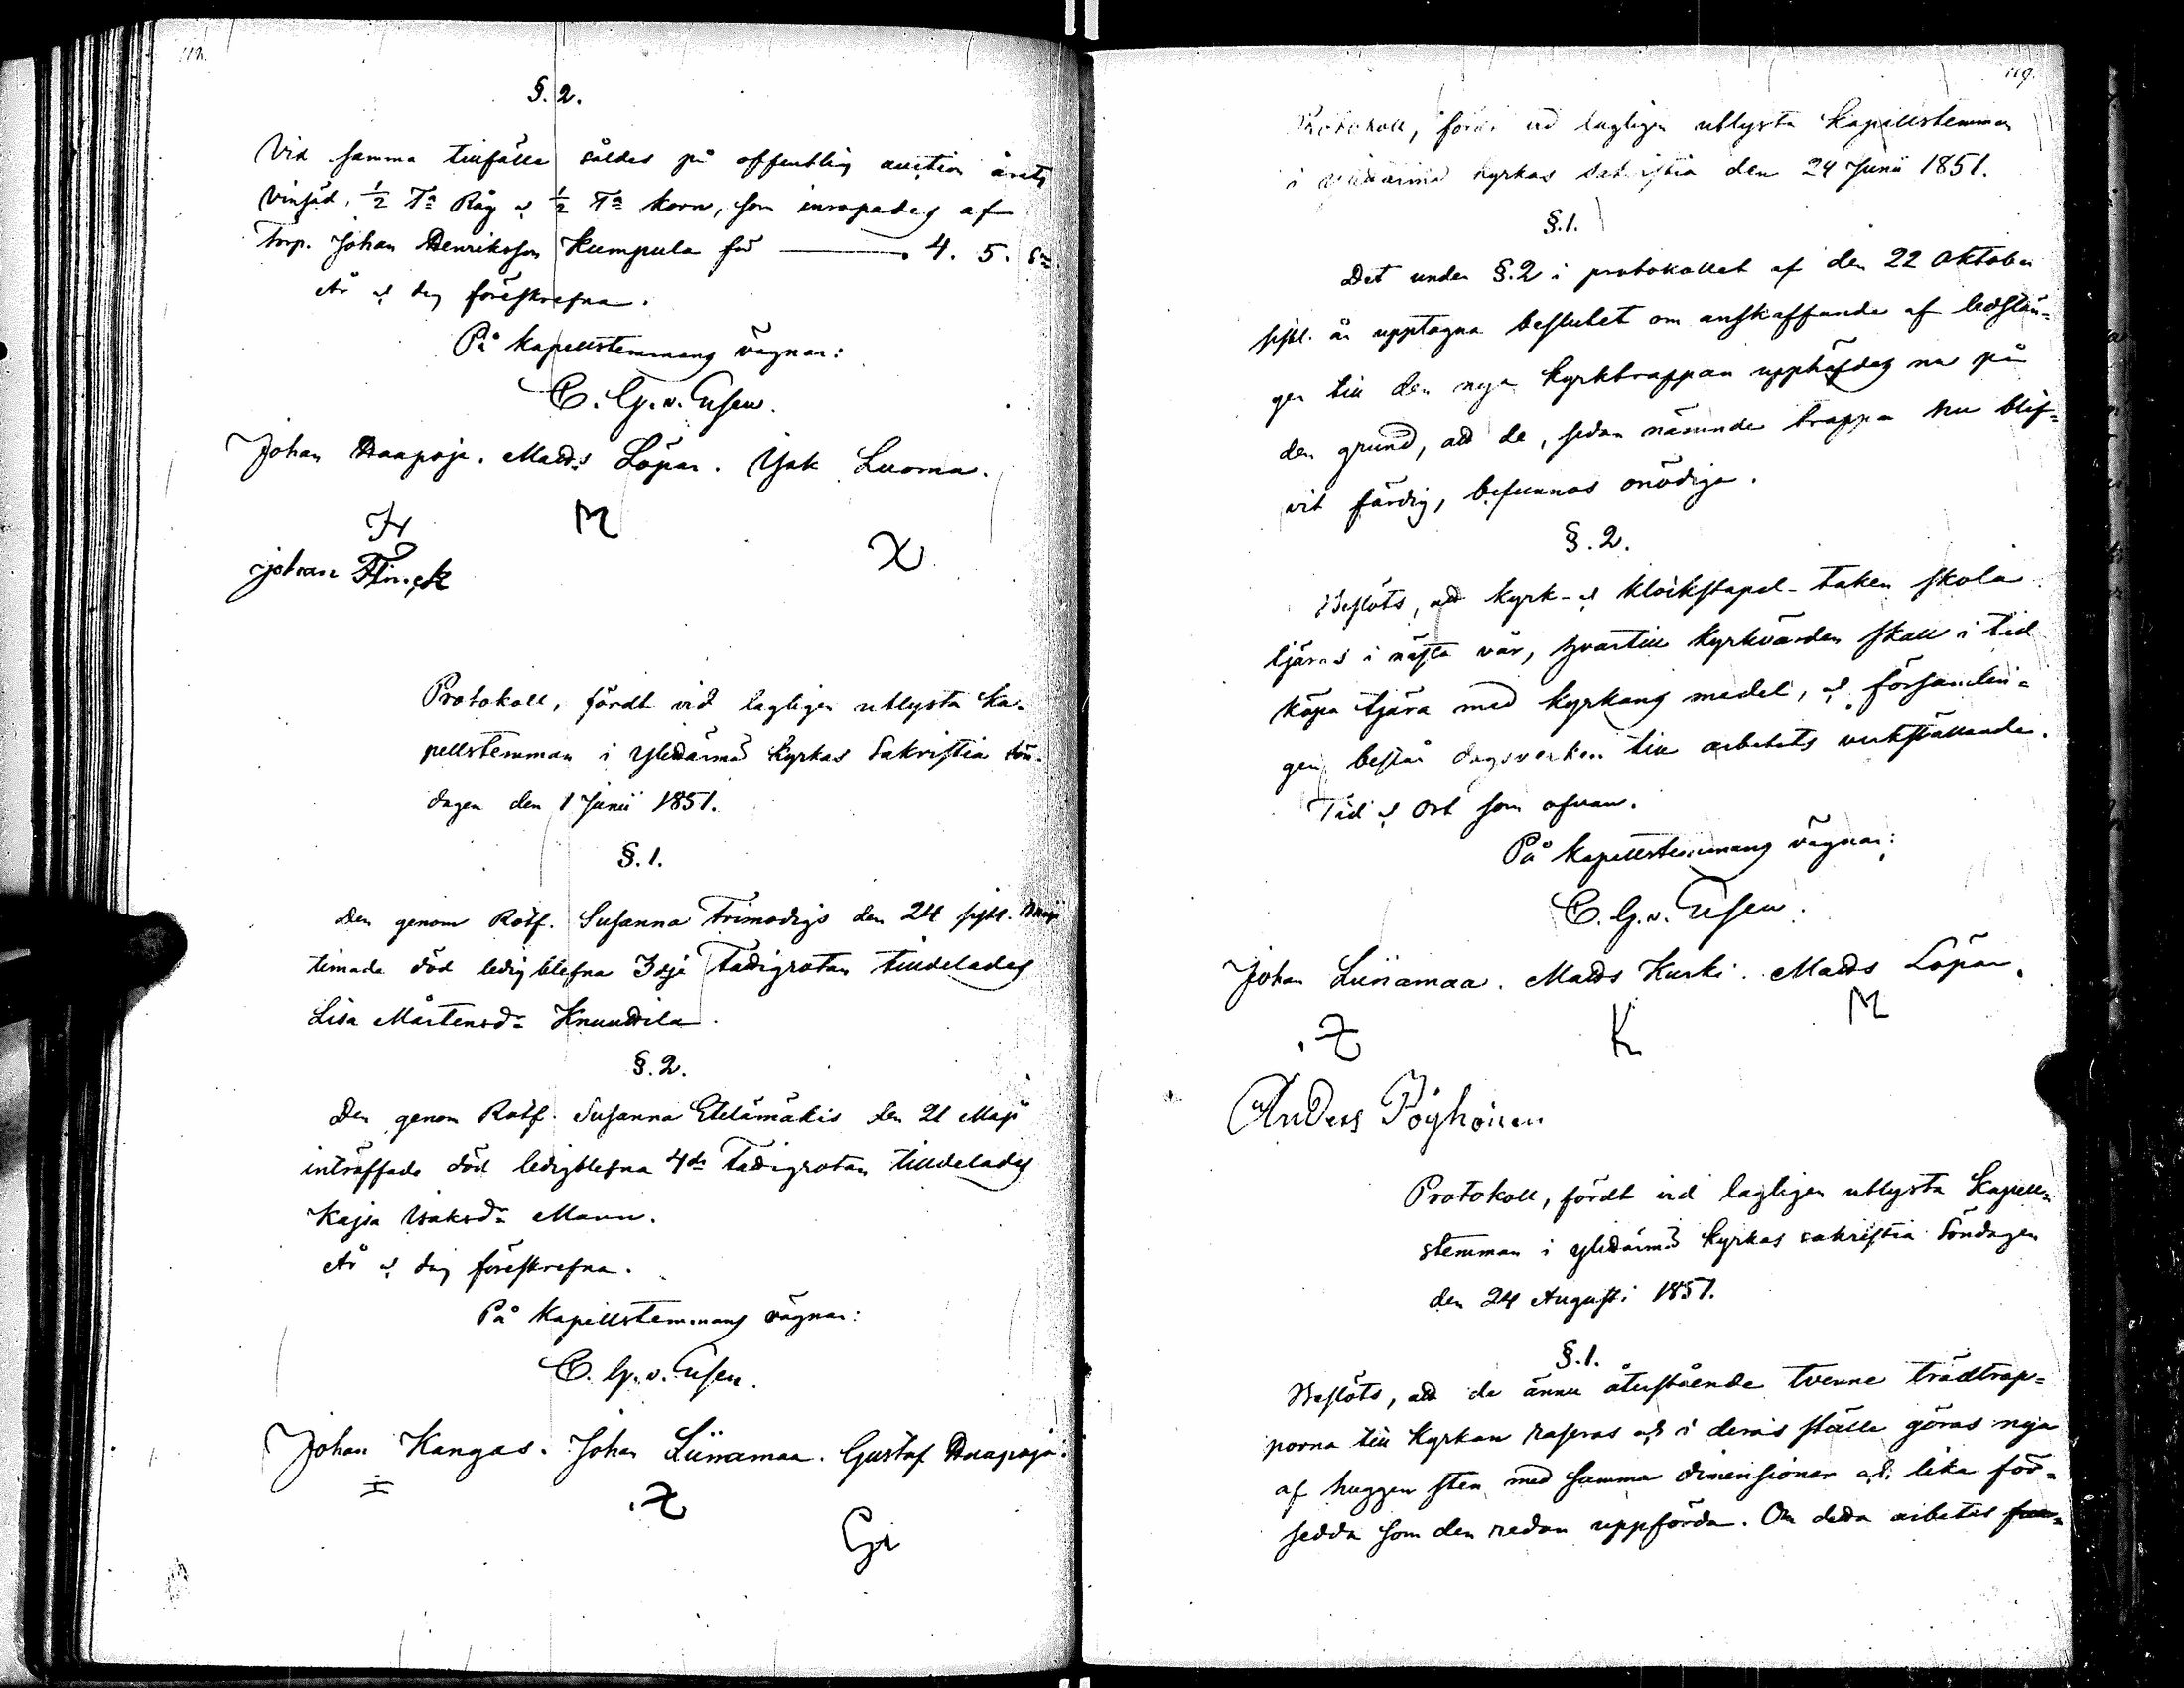 112.
§. 2.
Vid samma tillfälle såldes på offentlig auction årets
vinsäd, ½ Ta Råg & ½ Ta korn, som inropades af
Torp. Johan Henriksson Kumpula för —— 4. 5. Sr.
År & dag föreskrefna.
På kapellstemmans vägnar:
C. G. v. Essen.
Johan Haapoja. Matts Löpar. Isak Luoma.
M X
johan Finck
Protokoll, fördt vid lagligen utlysta Ka-
pellstemman i Ylihärmä kyrkas Sakristia sön-
dagen den 1 Junii 1851.
§. 1.
Den genom Rotf. Susanna Frimodigs den 24 sistl.
timade död ledigblefna 3dje Fattigrotan tilldelades
Lisa Mårtensdr Knuuttila.
§. 2.
Den genom Rotf. Susanna Etelämäkis den 21 Maji
inträffade död ledigblefna 4de Fattigrotan tilldelades
Kajsa Isaksdr Mann.
År & dag föreskrefna.
På Kapellstemmans vägnar:
C. G. v. Essen.
Johan Kangas. Johan Liinamaa. Gustaf Haapoja.
119.
Protokoll, fördt vid lagligen utlysta Kapellstemman
i Ylihärmä kyrkas sakristia den 24 Junii 1851.
§. 1.
Det under §. 2 i protokollet af den 22 Oktober
sistl. år upptagna beslutet om anskaffande af ledstän=
ger till den nya kyrktrappan upphäfdes nu på
den grund, att de, sedan nämnde trappa nu blif=
vit färdig, befunnos onödiga.
§. 2.
Beslöts, att kyrk- & klockstapel-taken skola
tjäras i nästa vår, hvartill kyrkvärden skall i tid
köpa tjära med kyrkans medel, & församlin=
gen bestå dagsverken till arbetets verkställande.
Tid & ort som ofvan.
På kapellstemmans vägnar:
C. G. v. Essen.
Johan Liinamaa. Matts Kurki. Matts Löpar.
K M
Anders Pöyhönen
Protokoll, fördt vid lagligen utlysta Kapell=
stemman i Ylihärmä kyrkas sakristia Söndagen
den 24 Augusti 1851.
§. 1.
Beslöts, att de ännu återstående tvenne trädtrap=
porna till kyrkan raseras och i deras ställe göras nya
af huggen sten med samma dimensioner och lika för=
sedda som den redan uppförda. Om detta arbetes